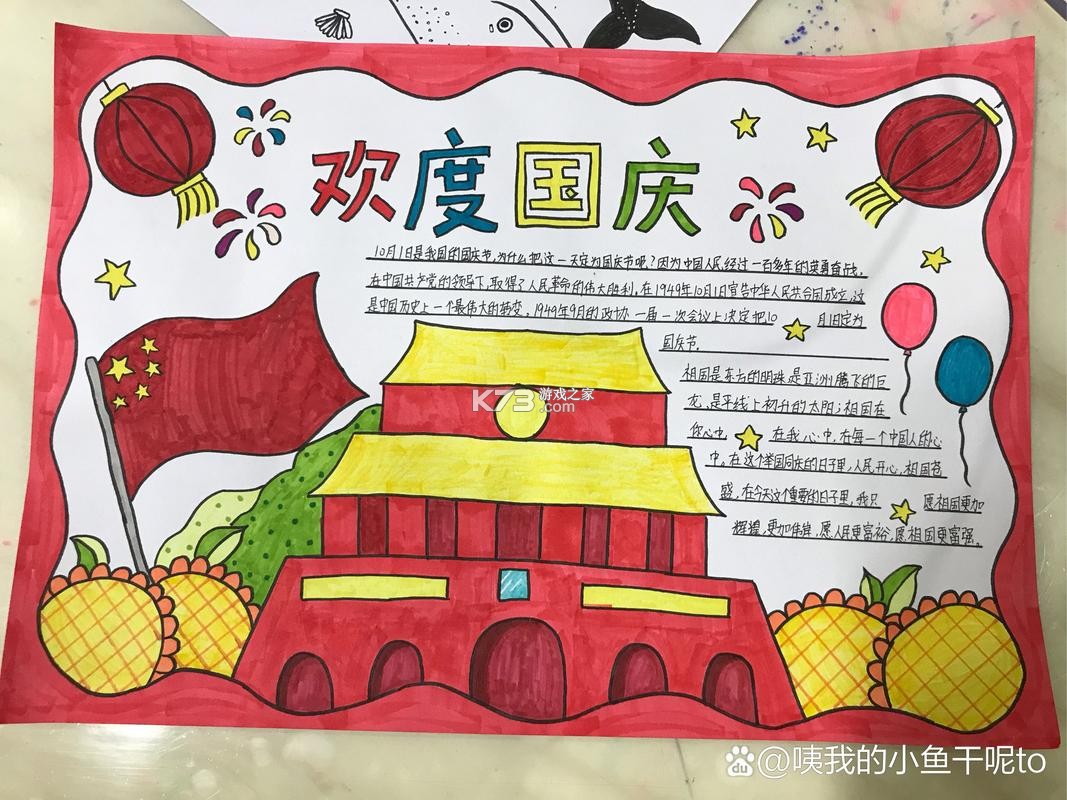 欢度国庆
10月1日是我国的国庆节,为什么把这一天定为国庆节呢?因为中国人民经过一百多年的英勇奋战,
在中国共产党的领导下,取得了人民革命的伟大胜利,在1949年10月1日宣告中华人民共合国成立,这
是中国历史上一个最伟大的转变,1949年9月的政协一届一次会议上决定把10月1日定为
国庆节.
祖国是东方的明珠,是亚洲腾飞的巨
龙,是平线上初升的太阳;祖国在
你心中 在我心中,在每一个中国人的心
中。在这个举国同庆的日子里,人民开心,祖国苍
盛,在今天这个重要的日子里,我只 愿祖国更加
辉煌,更加伟岸,愿人民更富裕,愿祖国更富强。
K73 游戏之家
.com
Bai du @咦我的小鱼干呢to